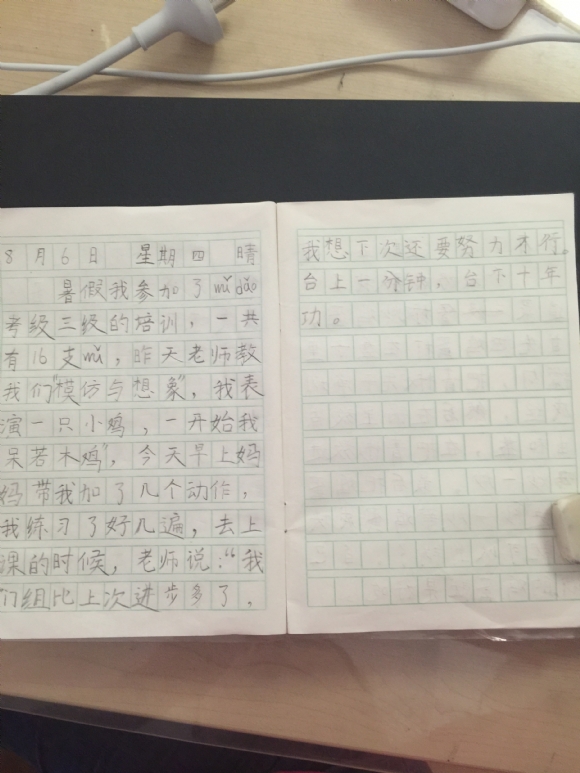 8月6日 星期四 晴
暑假我参加了mǔ dǎo
考级三级的培训，一共
有16支mǔ，昨天老师教
我们“模仿与想象”，我表
演一只小鸡，一开始我
呆若木鸡”，今天早上妈
妈带我加了几个动作，
我练习了好几遍，去上
课的时候，老师说：“我
们组比上次进步多了，
我想下次还要努力才行。
台上一分钟，台下十年
功。